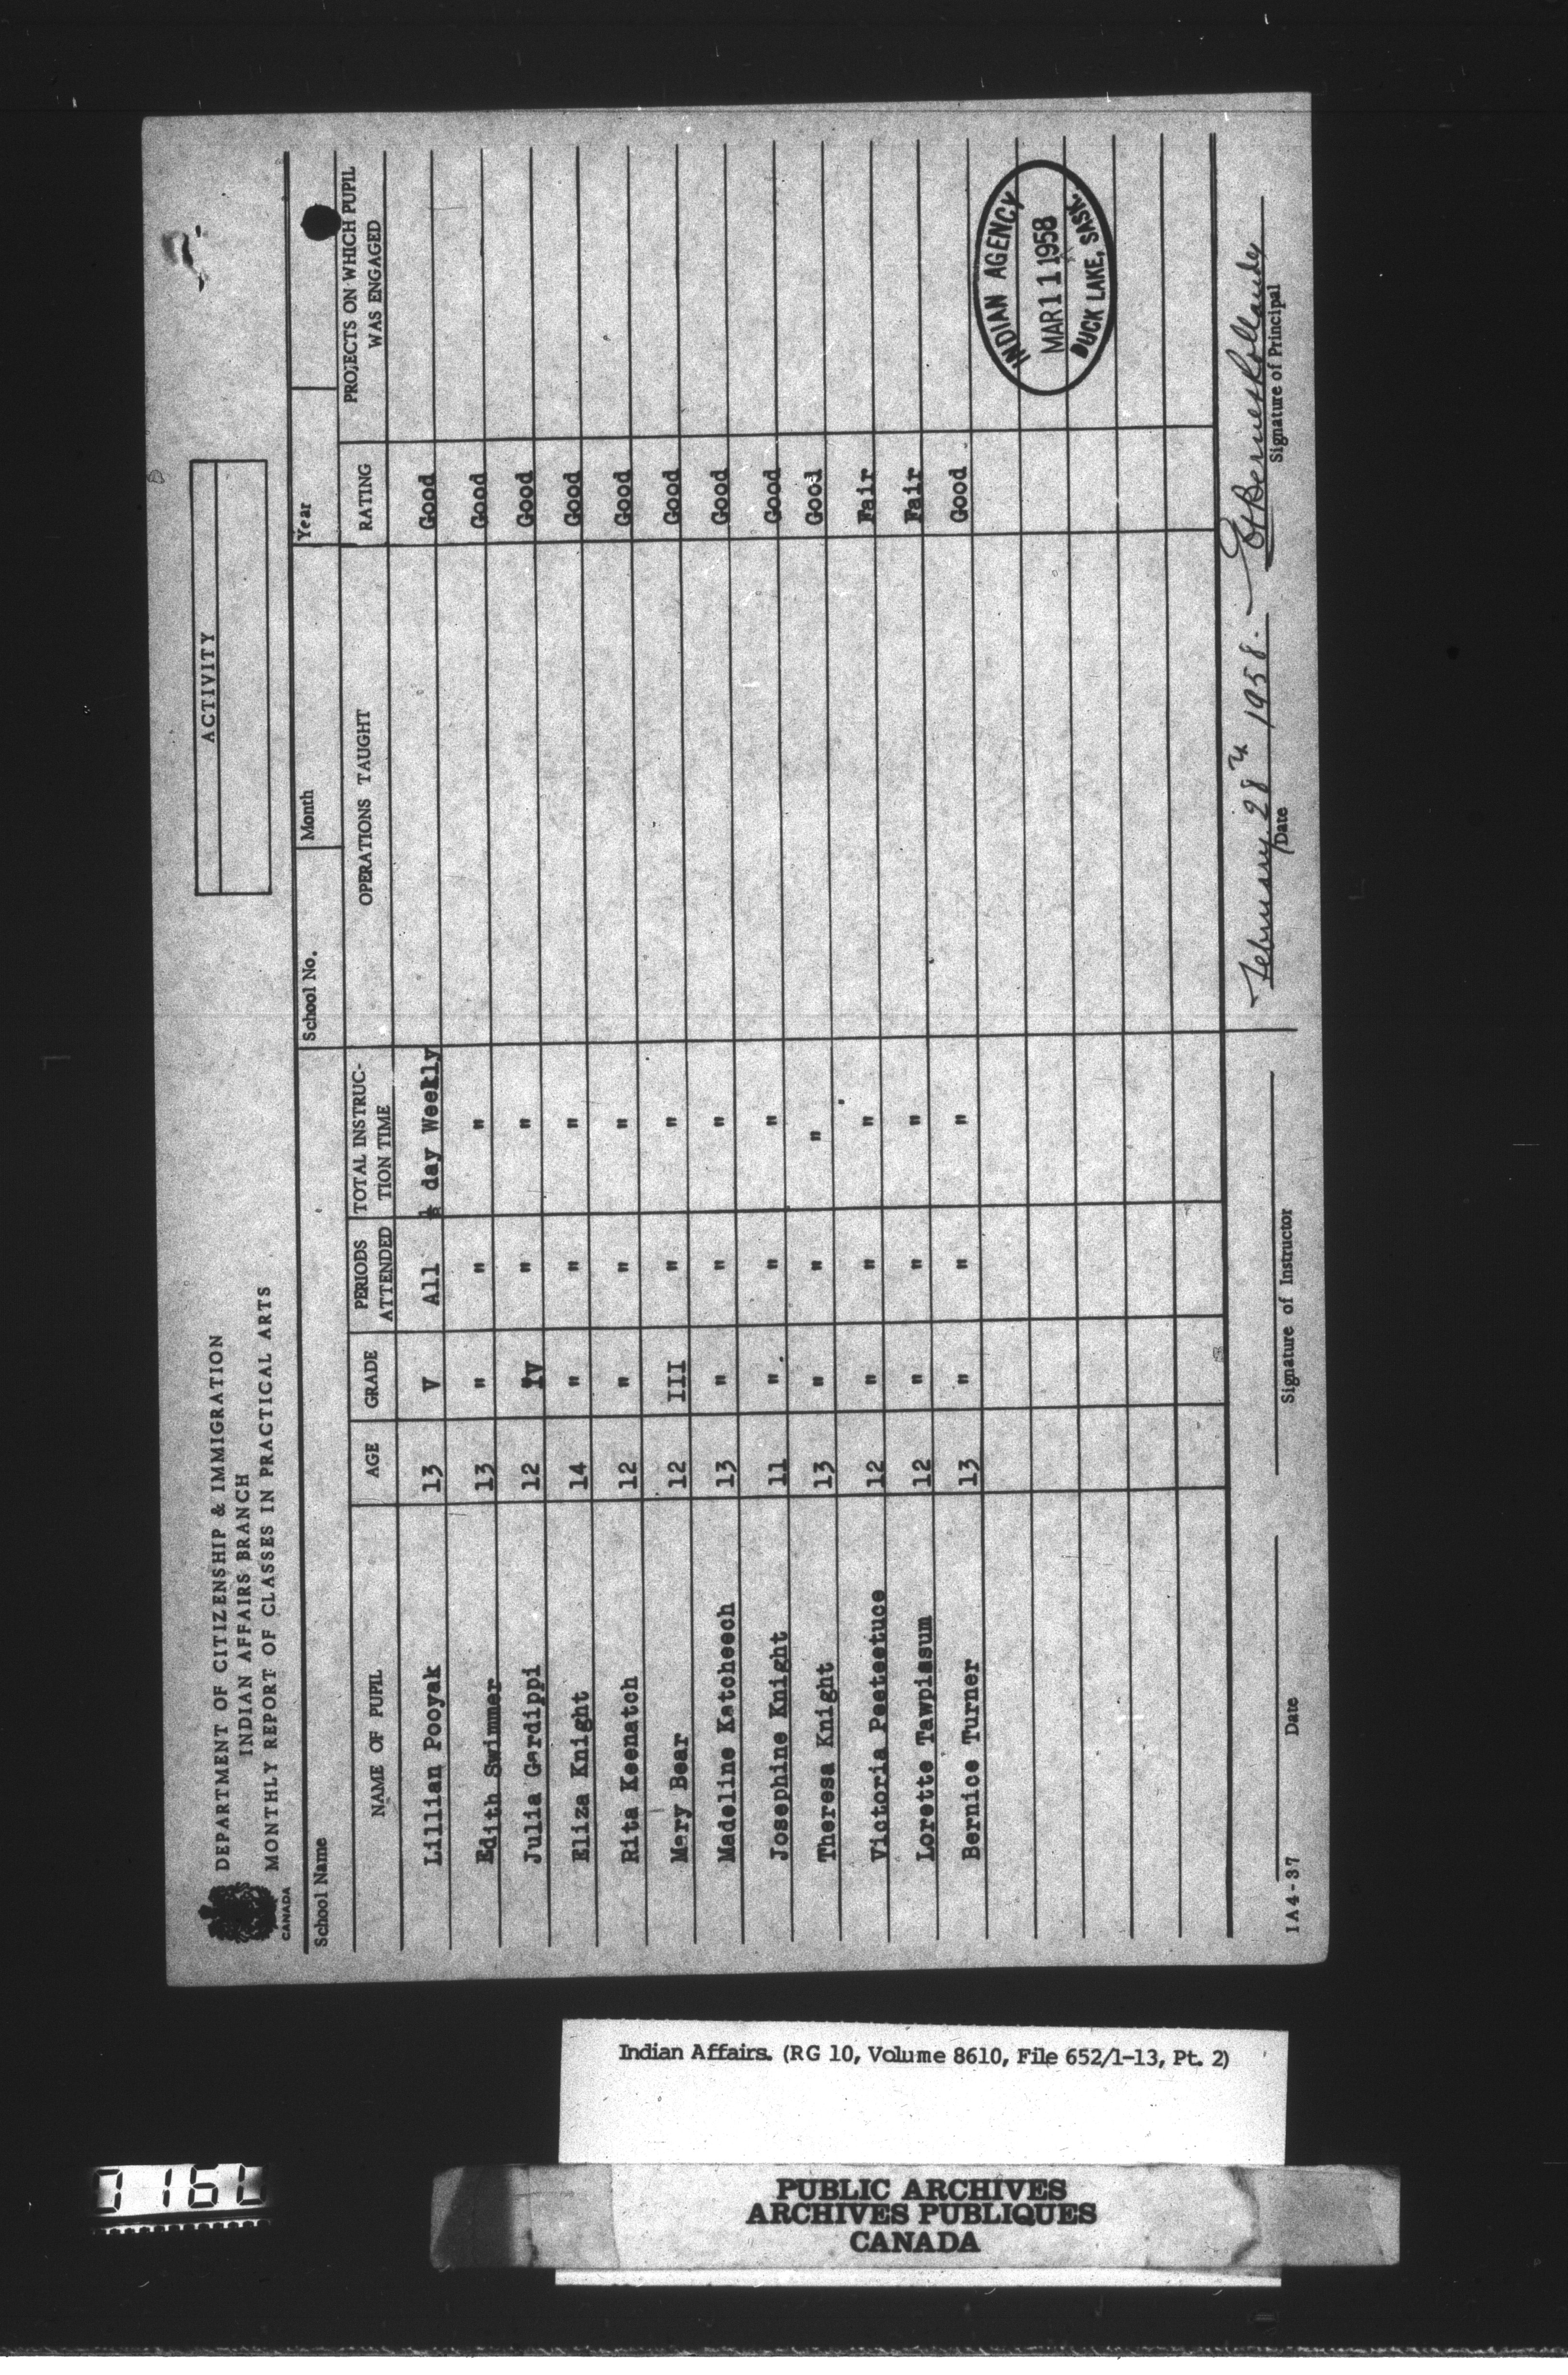 ACTIVITY
DEPARTMENT OF CITIZENSHIP & IMMIGRATION
INDIAN AFFAIRS BRANCH
MONTHLY REPORT OF CLASSES IN PRACTICAL ARTS
CANADA
School Name School No. Month Year
NAME OF PUPIL AGE GRADE PERIODS ATTENDED TOTAL INSTRUC-TION TIME OPERATIONS TAUGHT RATING PROJECTS ON WHICH PUPIL WAS ENGAGED
Lillian Pooyak 13 V All ½ day Weekly Good
Edith Swimmer 13 " " " Good
Julia Gardippi 12 IV " " Good
Eliza Knight 14 " " " Good
Rita Keenatch 12 " " " Good
Mary Bear 12 III " " Good
Madeline Katcheech 13 " " " Good
Josephine Knight 11 " " " Good
Theresa Knight 13 " " " Good
Victoria Peeteetuce 12 " " " Fair
Lorette Tawpiasum 12 " " " Fair
Bernice Turner 13 " " " Good
INDIAN AGENCY
MAR 11 1958
DUCK LAKE, SASK.
February 28th 1958.
Date Signature of Instructor Date Signature of Principal
IA 4-37
Indian Affairs. (RG 10, Volume 8610, File 652/1-13, Pt. 2)
PUBLIC ARCHIVES
ARCHIVES PUBLIQUES
CANADA